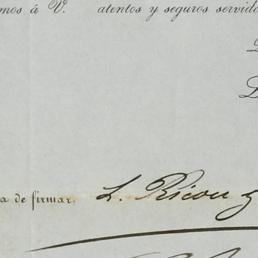 mos á V. atentos y seguros servido
L
a de firmar. L. Ricou y